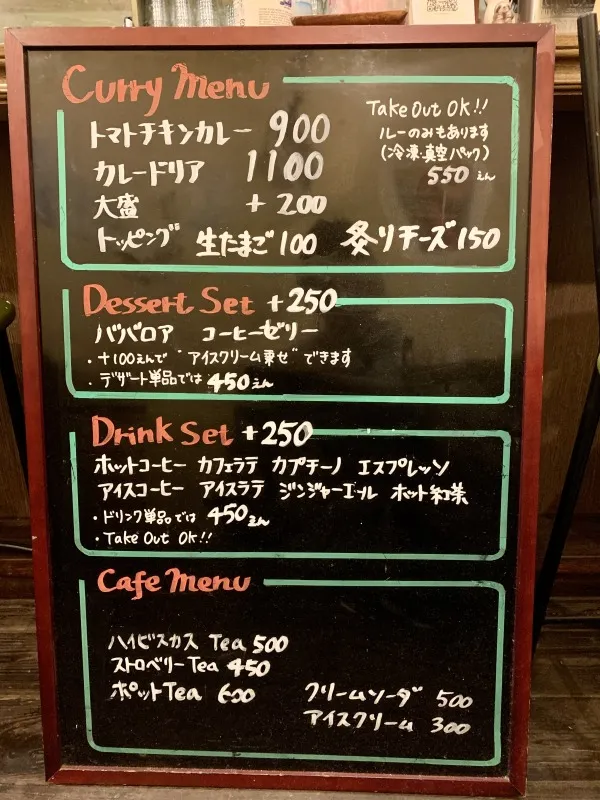 Curry Menu
Take Out OK!!
ルーのみもあります
(冷凍・真空パック)
550えん
トマトチキンカレー 900
カレードリア 1100
大盛 +200
トッピング 生たまご100 炙りチーズ150
Dessert Set +250
ババロア コーヒーゼリー
・+100えんで "アイスクリーム乗せ" できます
・デザート単品では 450えん
Drink Set +250
ホットコーヒー カフェラテ カプチーノ エスプレッソ
アイスコーヒー アイスラテ ジンジャーエール ホット紅茶
・ドリンク単品では 450えん
・Take Out OK!!
Cafe Menu
ハイビスカス Tea 500
ストロベリーTea 450
ポットTea 600
クリームソーダ 500
アイスクリーム 300